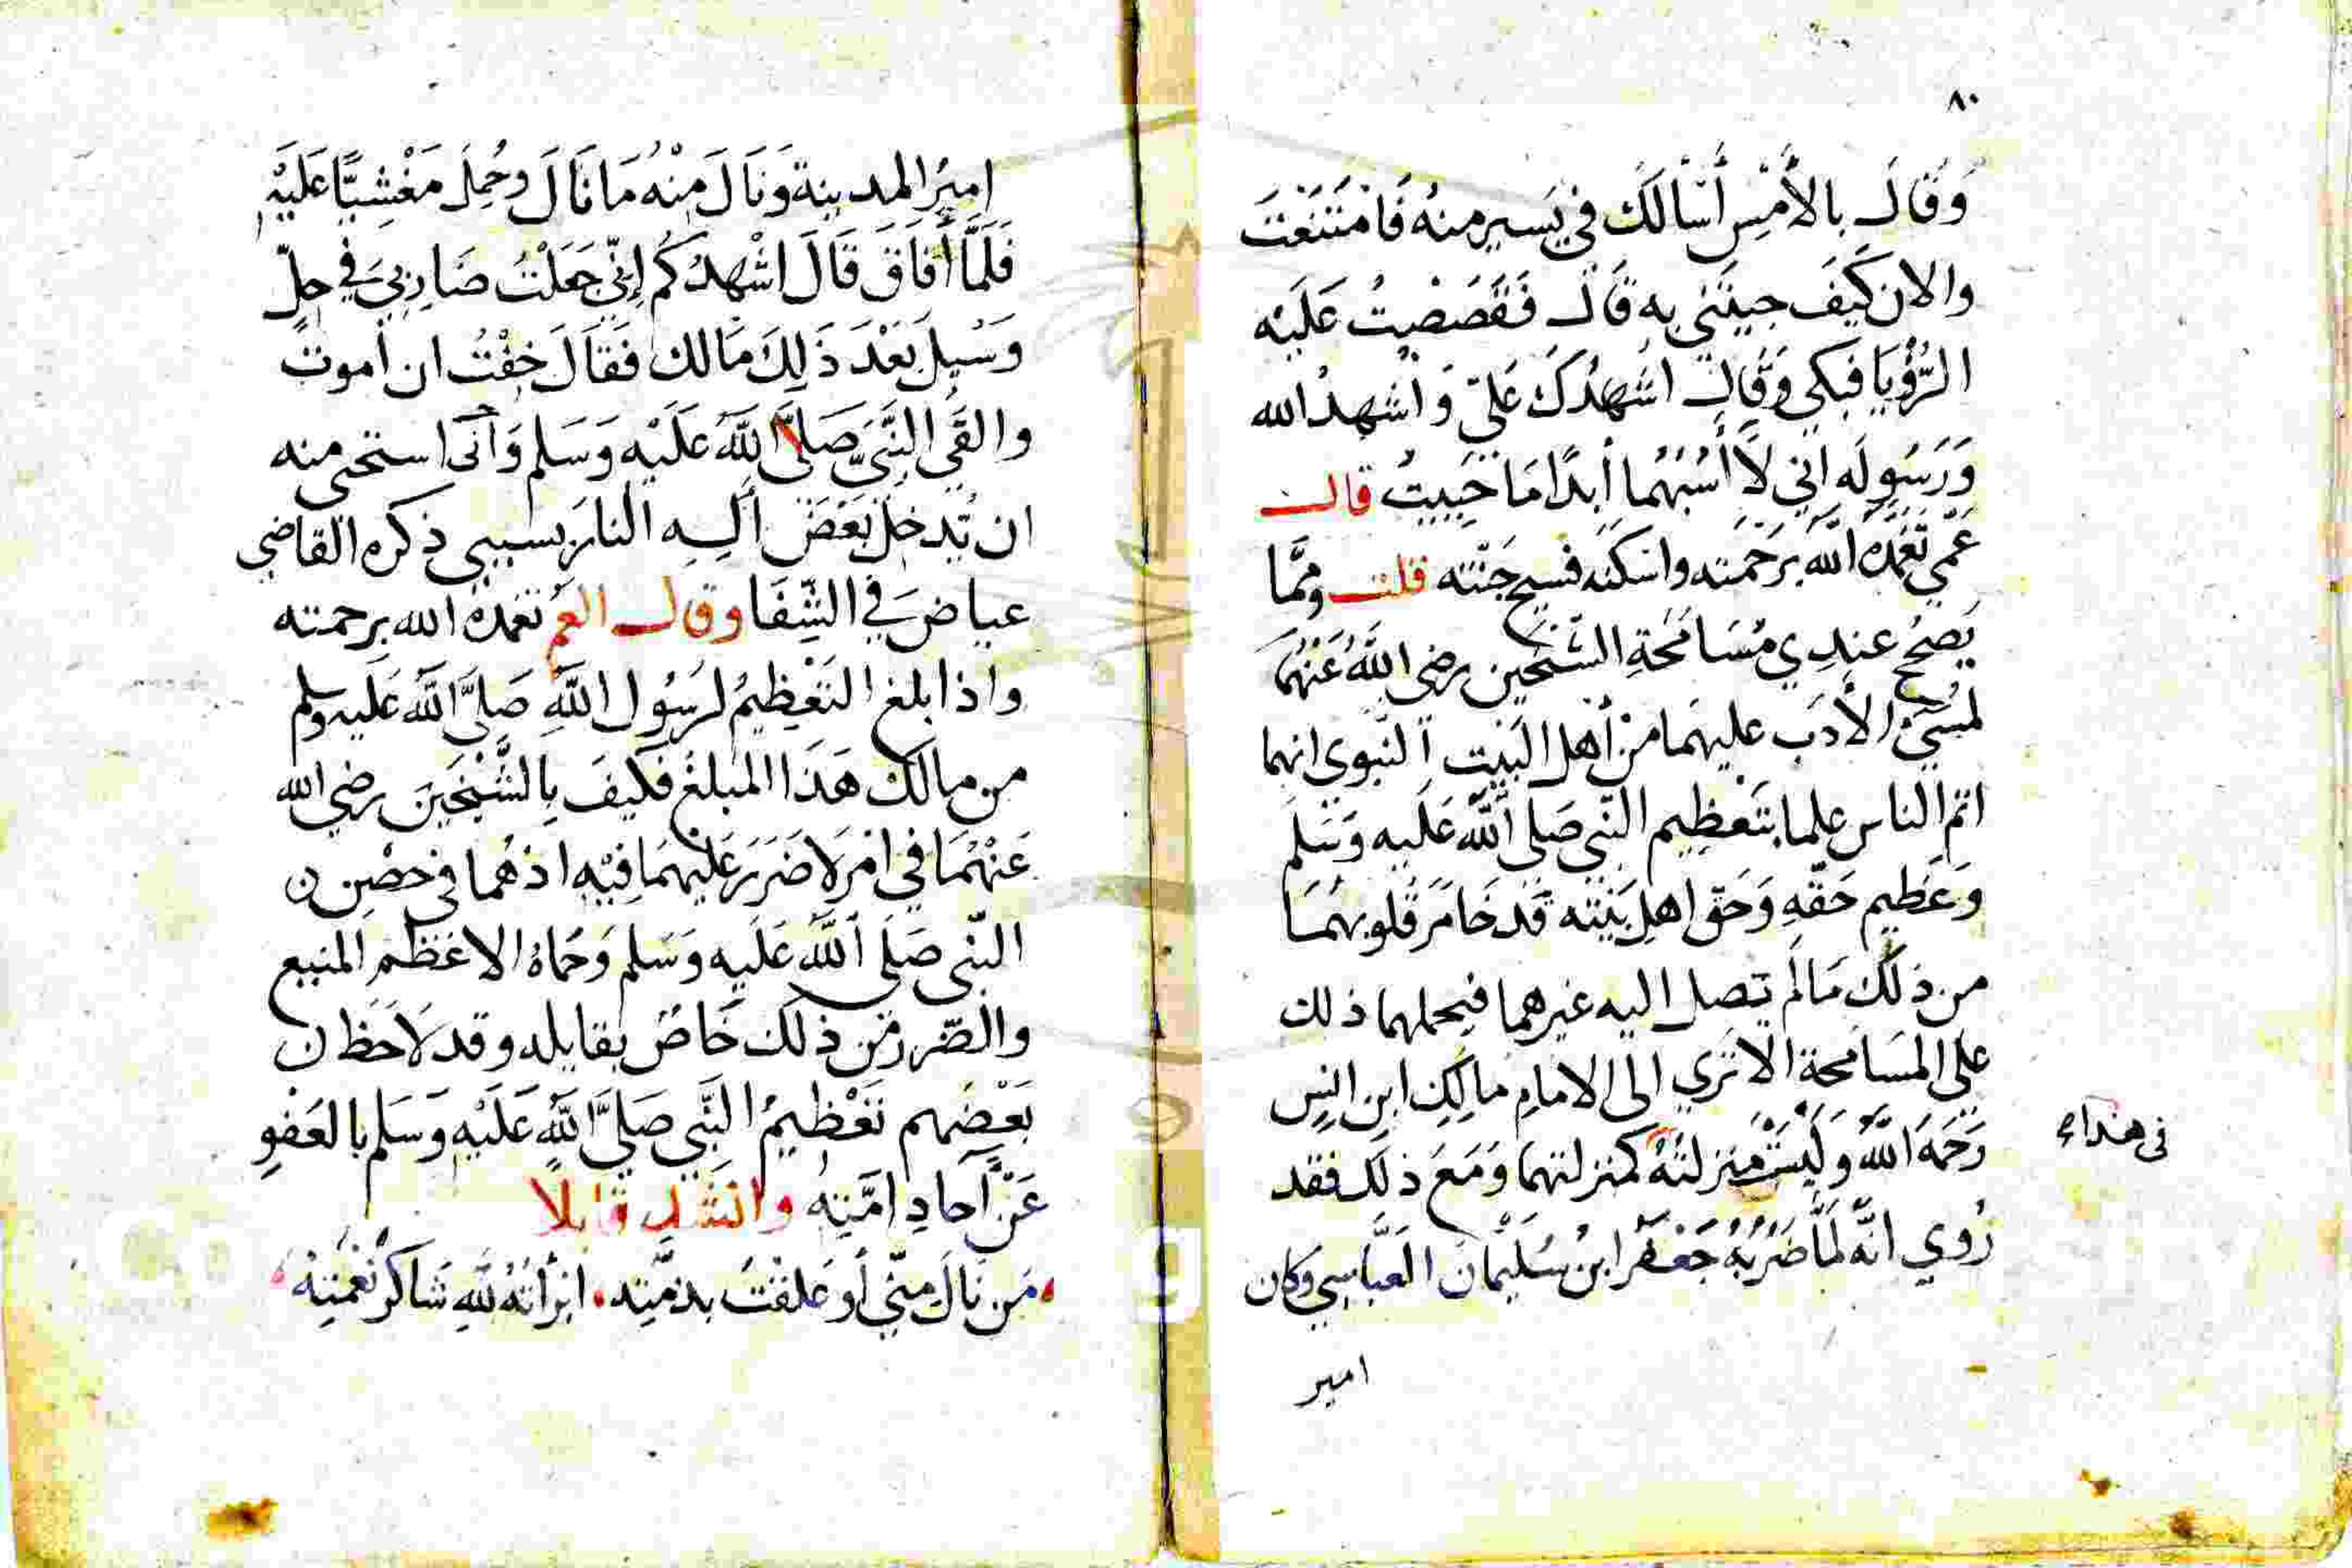 ٨٠
وَقَالَ بالأَمْسِ أَسْأَلُكَ في يَسيرٍ منهُ فَامْتَنَعْتَ
والان كَيفَ جيتَني به قَالَ فَقَصَصْتُ عَلَيْه
الرُّؤْيَا فبكي وَقَال اشهدُكَ عَليّ وَاشهدُ الله
وَرَسُولَه اني لَا أَسُبّهُما أبدًا مَا حَيِيتُ قال
عَمّي تغَمّدَهُ اللّه بِرَحْمَته واسكنَه فسيح جَنّته قلت وممَّا
يَصِحُ عندِي مُسَامَحَةِ الشّيْخَين رضي اللَّهُ عَنْهُمَا
لمسيْ الأَدَب عليهمَا منْ أهل البَيت النّبوي انهما
اتمّ الناس علما بتَعْظِيم النّبي صَلى اللّه عَلَيه وَسَلمَ
وَعَظِيم حَقّهِ وَحَق اهلِ بَيْته قَد خَامَرَ قُلوبهُمَا
من ذلكَ مَا لَم يَصل اليه غيرهما فيحملهما ذلك
على المسَامَحة الا ترَي الى الامام مالِكِ ابن انسٍ
رَحمَهُ اللّهُ وَلَيْسَتْ منزلتهُ كمنزلتهما وَمَعَ ذلكَ فقد
في هذاء
رُوي انّه لَمَّا ضَرَبَهُ جَعْفَر ابن سُلَيْمان العَبَّاسي وكان
امير
اميرُ المدينة وَنَالَ مِنْهُ مَا نَالَ وحُمِلَ مَغْشِيًّا عَلَيْهِ
فَلَمَّا أَفَاقَ قَالَ اشْهِدُكُم إِنّي جَعَلْتُ ضَارِبيَ في حِلٍّ
وَسُيِلَ بَعْدَ ذَلِكَ مَالك فَقَالَ خِفْتُ ان اموت
والقَي النَّبيّ صَلَّى اللَّهُ عَلَيْه وَسَلم وَانّى استحي منه
ان تُدخلَ بَعْضَ ألِهِ النارَ بسببي ذكره القاضي
عياضَ في الشِّفَا وقال العمّ تغمّدهُ الله برحمته
واذا بلغ التَعْظِيمُ لرَسُول اللَّهِ صَلَّى اللَّه عَلَيه وسلم
من مالك هَذَا المبلغ فَكَيفَ بِالشَّيْخَينَ رضي الله
عَنْهُمَا في امْر لَا ضَرَرَ عَلَيْهِمَا فِيْهِ اذ هُما في حصْنِ
النّبي صَلَى اللَّه عَلَيه وَسَلم وَحِمَاهُ الاعَظم المنيع
والضّرر من ذلك خَاصٌ بقايله وقد لَاحَظَ
بَعْضُهم تَعْظِيمُ النَّبي صَلَيَّ اللَّهِ عَلَيْهِ وَسَلم بالعَفوِ
عَنْ آحادِ امَّتِهُ وانشد قايلا
مَن نَالَ منّي أو عَلقْتَ بذمَّتِه ۰ ابْرأتهُ للَّهِ شَاكَرَ نعْمَتِهْ